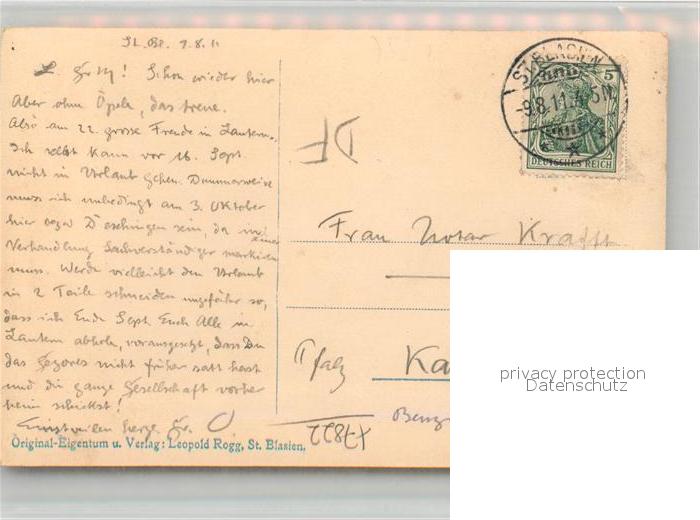 St. Bl. 9.8.11
! Schon wieder hier
Aber ohne Öpele, das treue.
Also am 22. grosse Freude in Lautern.
Ich selbst kann vor 16. Sept.
nicht in Urlaub gehen. Dummerweise
muss ich unbedingt am 3. Oktober
hier oder Dösschingen sein, da in einer
Verhandlung Sachverständiger markieren
muss. Werde vielleicht den Urlaub
in 2 Teile schneiden ungefähr so,
dass ich Ende Sept. Euch Alle in
Lautern abhole, vorausgesetzt, dass Du
das nicht früher satt hast
und die ganze Gesellschaft vorher
heim schickst!
Einstweilen herzl. Gr.
Original-Eigentum u. Verlag: Leopold Rogg, St. Blasien.
ST. BLASIEN
-9.8.11.
5
DEUTSCHES REICH
DF
Frau Notar Krafft
Pfalz Ka
x7822
privacy protection
Datenschutz